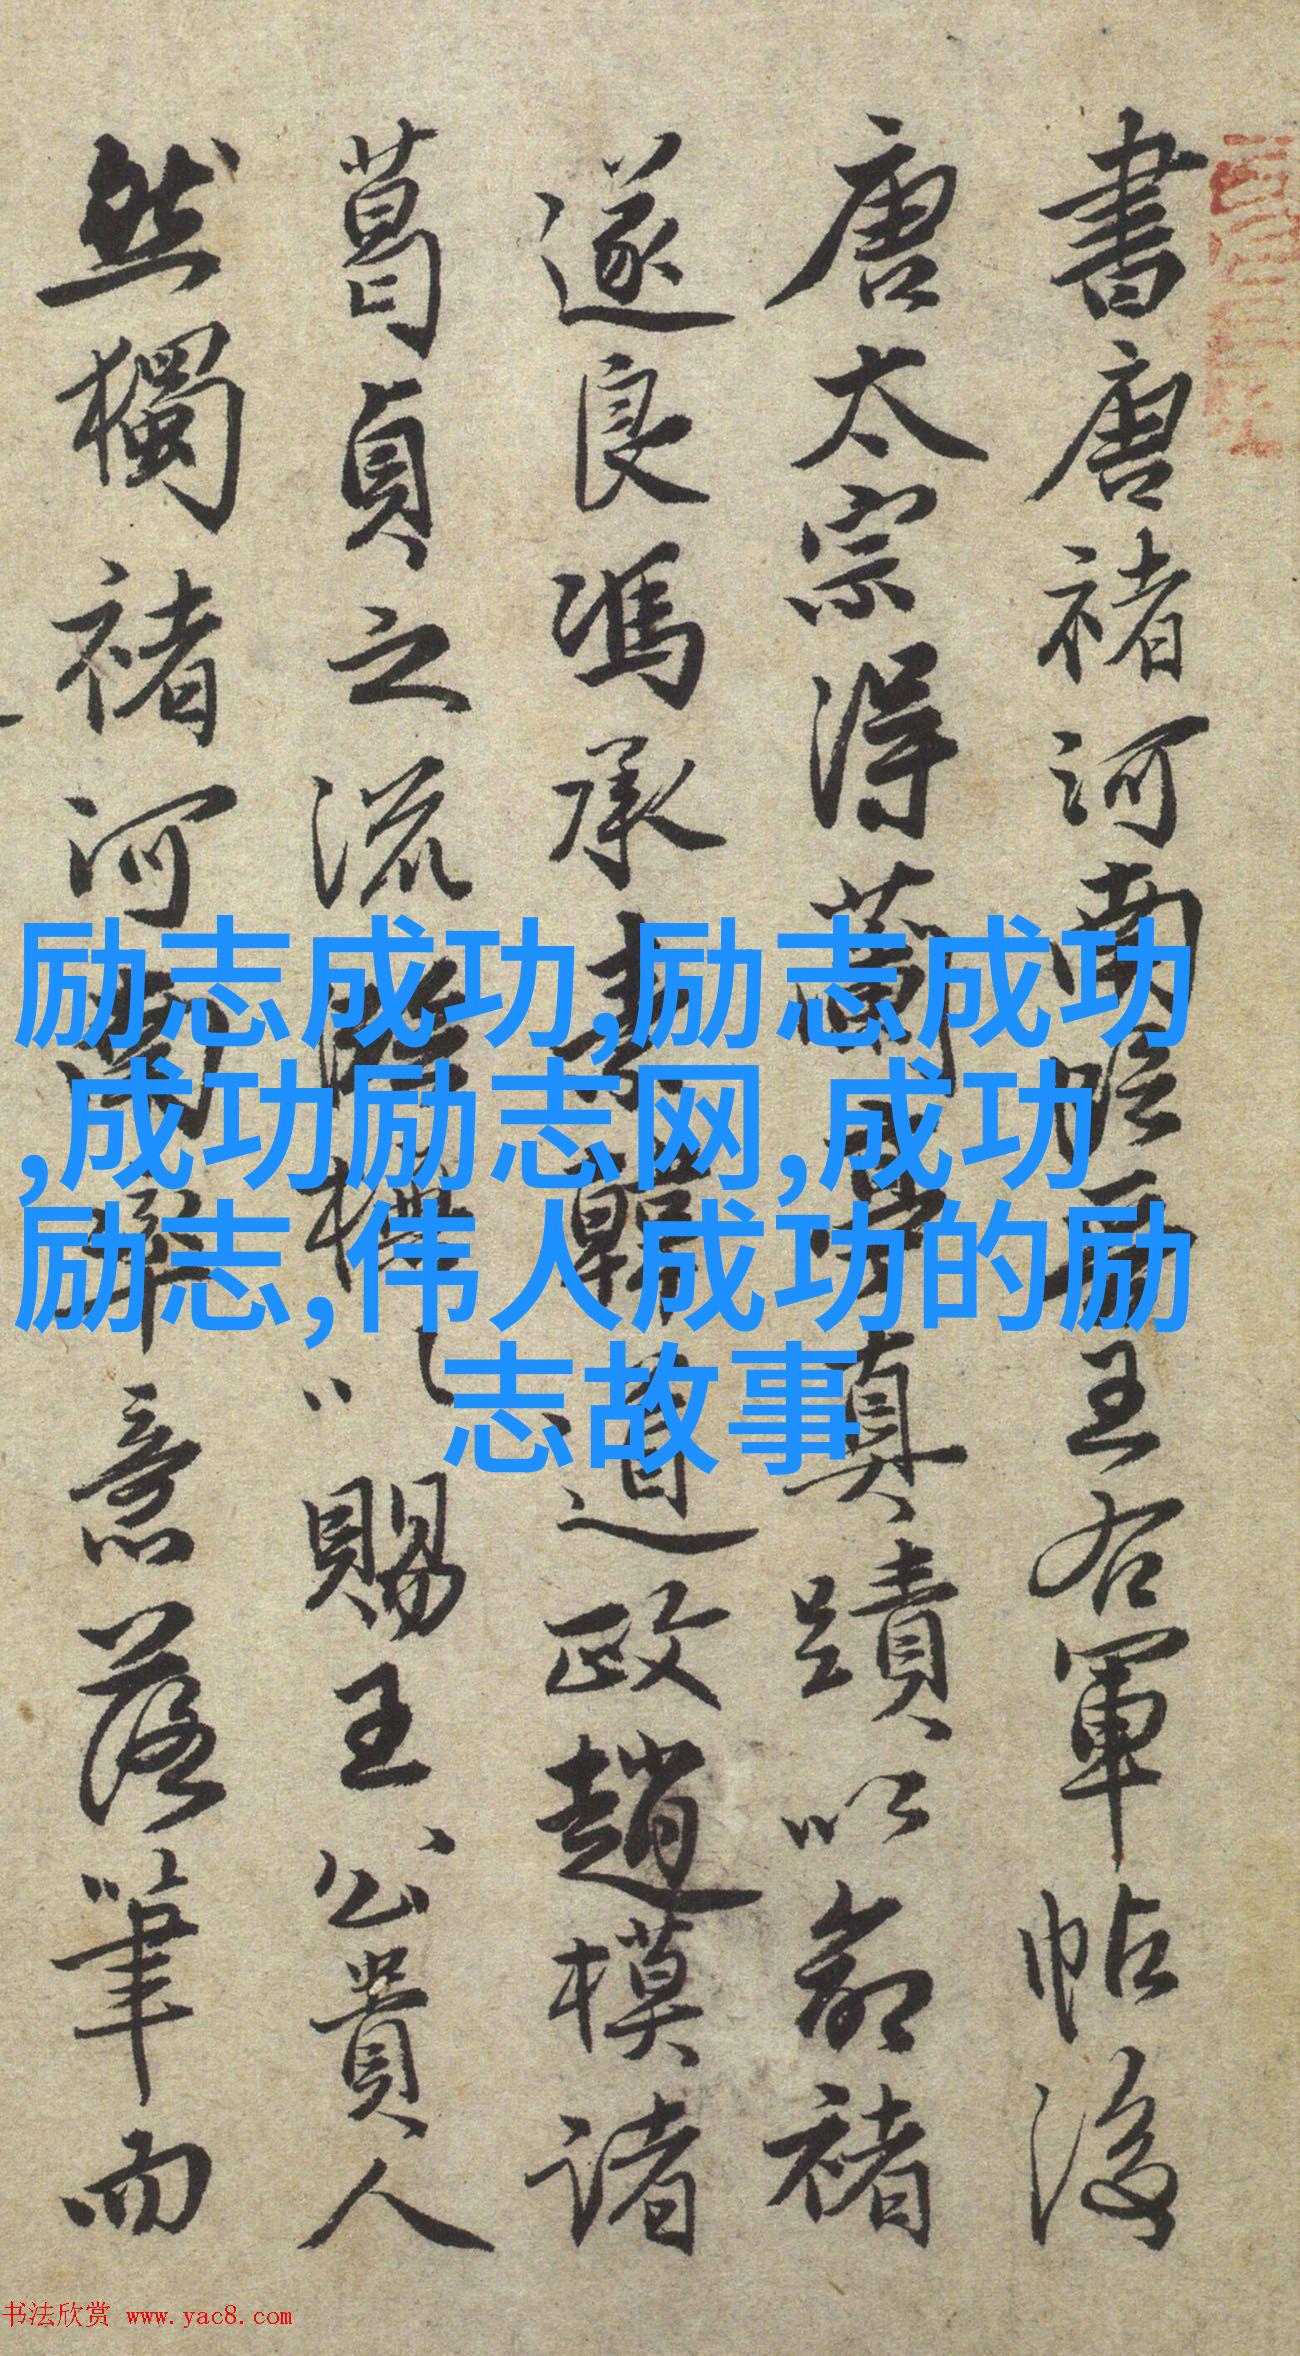 書唐褚河南臨晉王右軍帖後
唐太宗得蘭亭真蹟以命褚
遂良馮承素韓道政趙模諸
葛貞之流臨榻以賜王公貴人
然獨褚河南率意落筆而
励志成功,励志成功
,成功励志网,成功
励志,伟人成功的励
志故事
书法欣赏 www.yac8.com